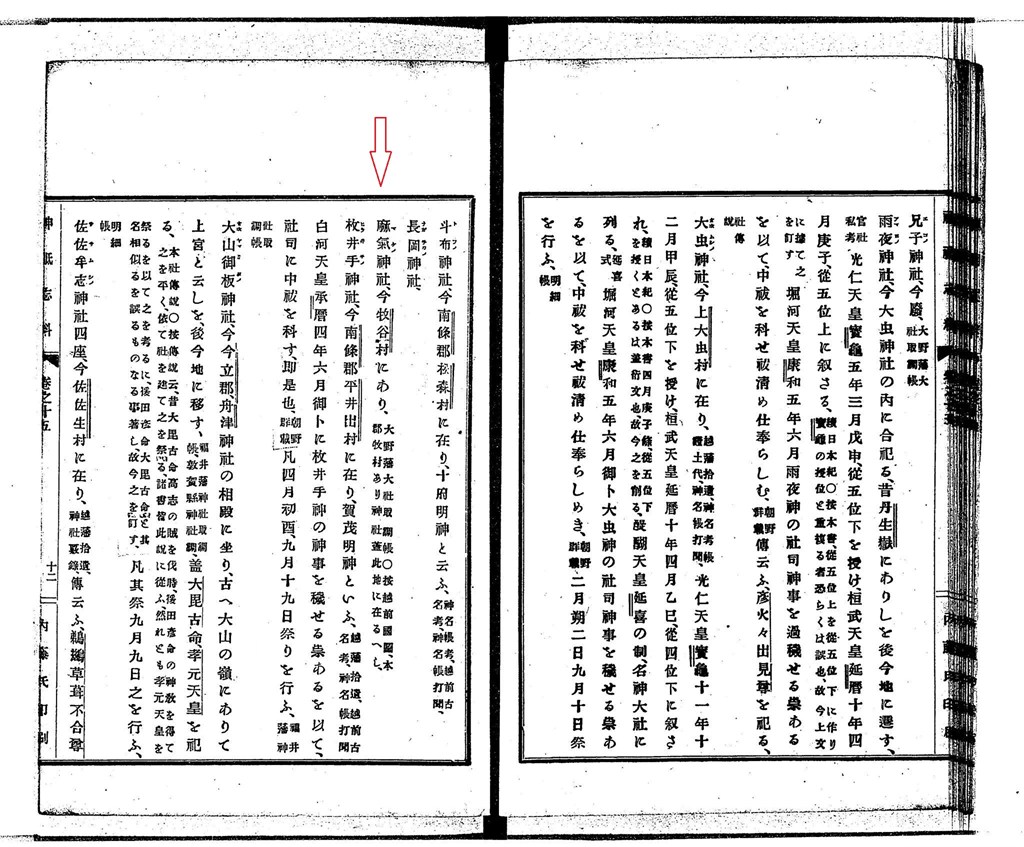 兄子神社、今廢、大野藩大社取調帳
雨夜神社、今大虫神社の內に合祀る、昔丹生嶽にありしを後今地に遷す、
官社私考光仁天皇寶龜五年三月戊申、從五位下を授け桓武天皇延曆十年四
月庚子、從五位上に叙さる、續日本紀〇按本書、從五位上を從五位下に作り寶龜の授位と重複る者恐らくは誤也、故今上文
に據て之を訂す堀河天皇康和五年六月雨夜神の社司神事を過穢せる祟ある
を以て中祓を科せ祓淸め仕奉らしむ、朝野群載傳云ふ、彥火々出見尊を祀る、
社傳說
大虫神社、今上大虫村に在り、越藩拾遺、神名考帳證土代、神名帳打聞、光仁天皇寶龜十一年十
二月甲辰、從五位下を授け、桓武天皇延曆十年四月乙巳、從四位下に叙さ
れ、續日本紀〇按本書四月庚子條、從五位下を授くとあるは蓋衍文也、故今之を削る、醍醐天皇延喜の制、名神大社に
列る、延喜式堀河天皇康和五年六月御卜大虫神の社司神事を穢せる祟あ
るを以て、中祓を科せ祓淸め仕奉らしめき、朝野群載二月朔二日九月十日祭
を行ふ、明細帳
斗布神社、今南條郡松森村に在り、十府明神と云ふ、神名帳考、越前古名考、神名帳打聞、
長岡神社、
麻氣神社、今牧谷村にあり、大野藩大社取調帳〇按越前國圖、本郡牧村あり神社蓋此地に在るへし、
枚井手神社、今南條郡平井出村に在り、賀茂明神といふ、越藩拾遺、越前古名考、神名帳打聞
白河天皇承曆四年六月御卜に枚井手神の神事を穢せる祟あるを以て、
社司に中祓を科す、卽是也、朝野群載凡四月初酉、九月十九日祭りを行ふ、福井藩神
社取調帳
大山御板神社、今今立郡、舟津神社の相殿に坐り、古へ大山の嶺にありて
上宮と云しを、後今地に移す、福井藩神社取調帳、敦賀縣神社調、蓋大毘古命、孝元天皇を祀
る、本社傳說〇按傳說云、昔大毘古命高志の賊を伐時、猿田彥命の神敎を得て之を平く、依て社を建て之を祭る、諸書皆此說に從ふ、然れとも孝元天皇を
祭るを以て之を考るに、猿田彥命大毘古命と其名相似るを誤るものなる事著し故今之を訂す、凡其祭九月九日之を行ふ、
明細帳
佐佐牟志神社四座、今佐佐生村に在り、越藩拾遺、神社蓑錄、傳云ふ、鵜鷀草葺不合尊
神祇志料
卷之十五
十二
內藤氏印刷